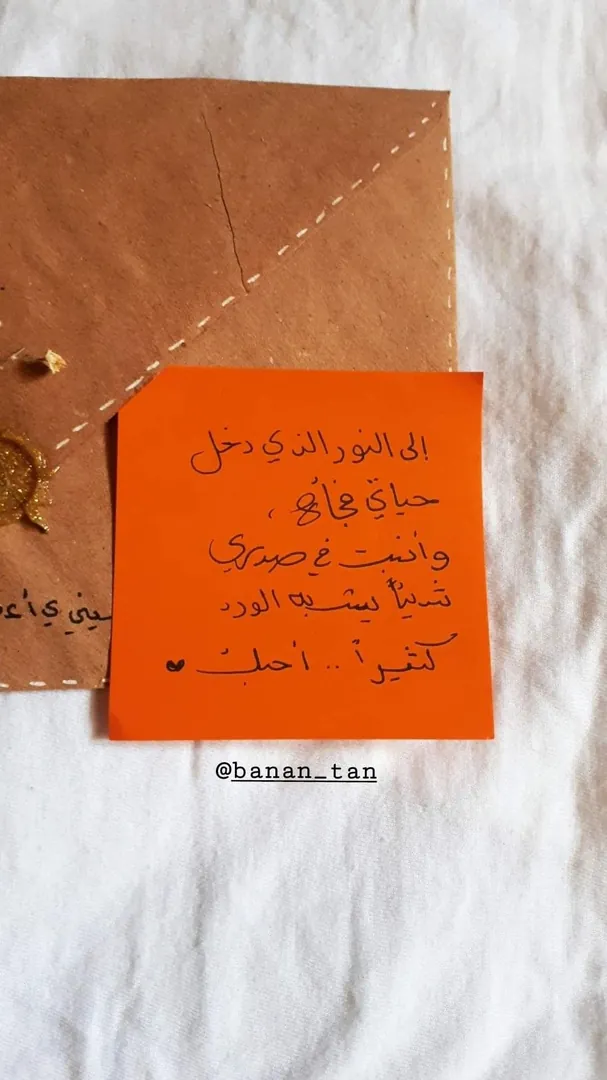 إلى النور الذي دخل
حياتي فجأة ،
وأنبت في صدري
شيئاً يشبه الورد
كثيراً .. أحبك ♥
@banan_tan